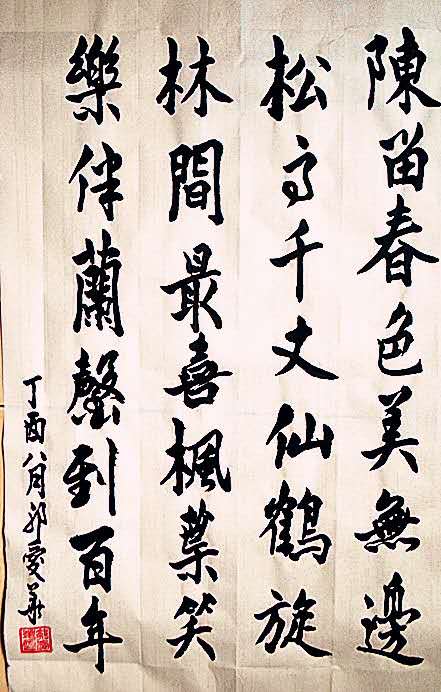 陳留春色美無邊
松高千丈仙鶴旋
林間最喜楓葉笑
樂伴蘭罄到百年
丁酉八月郭愛華